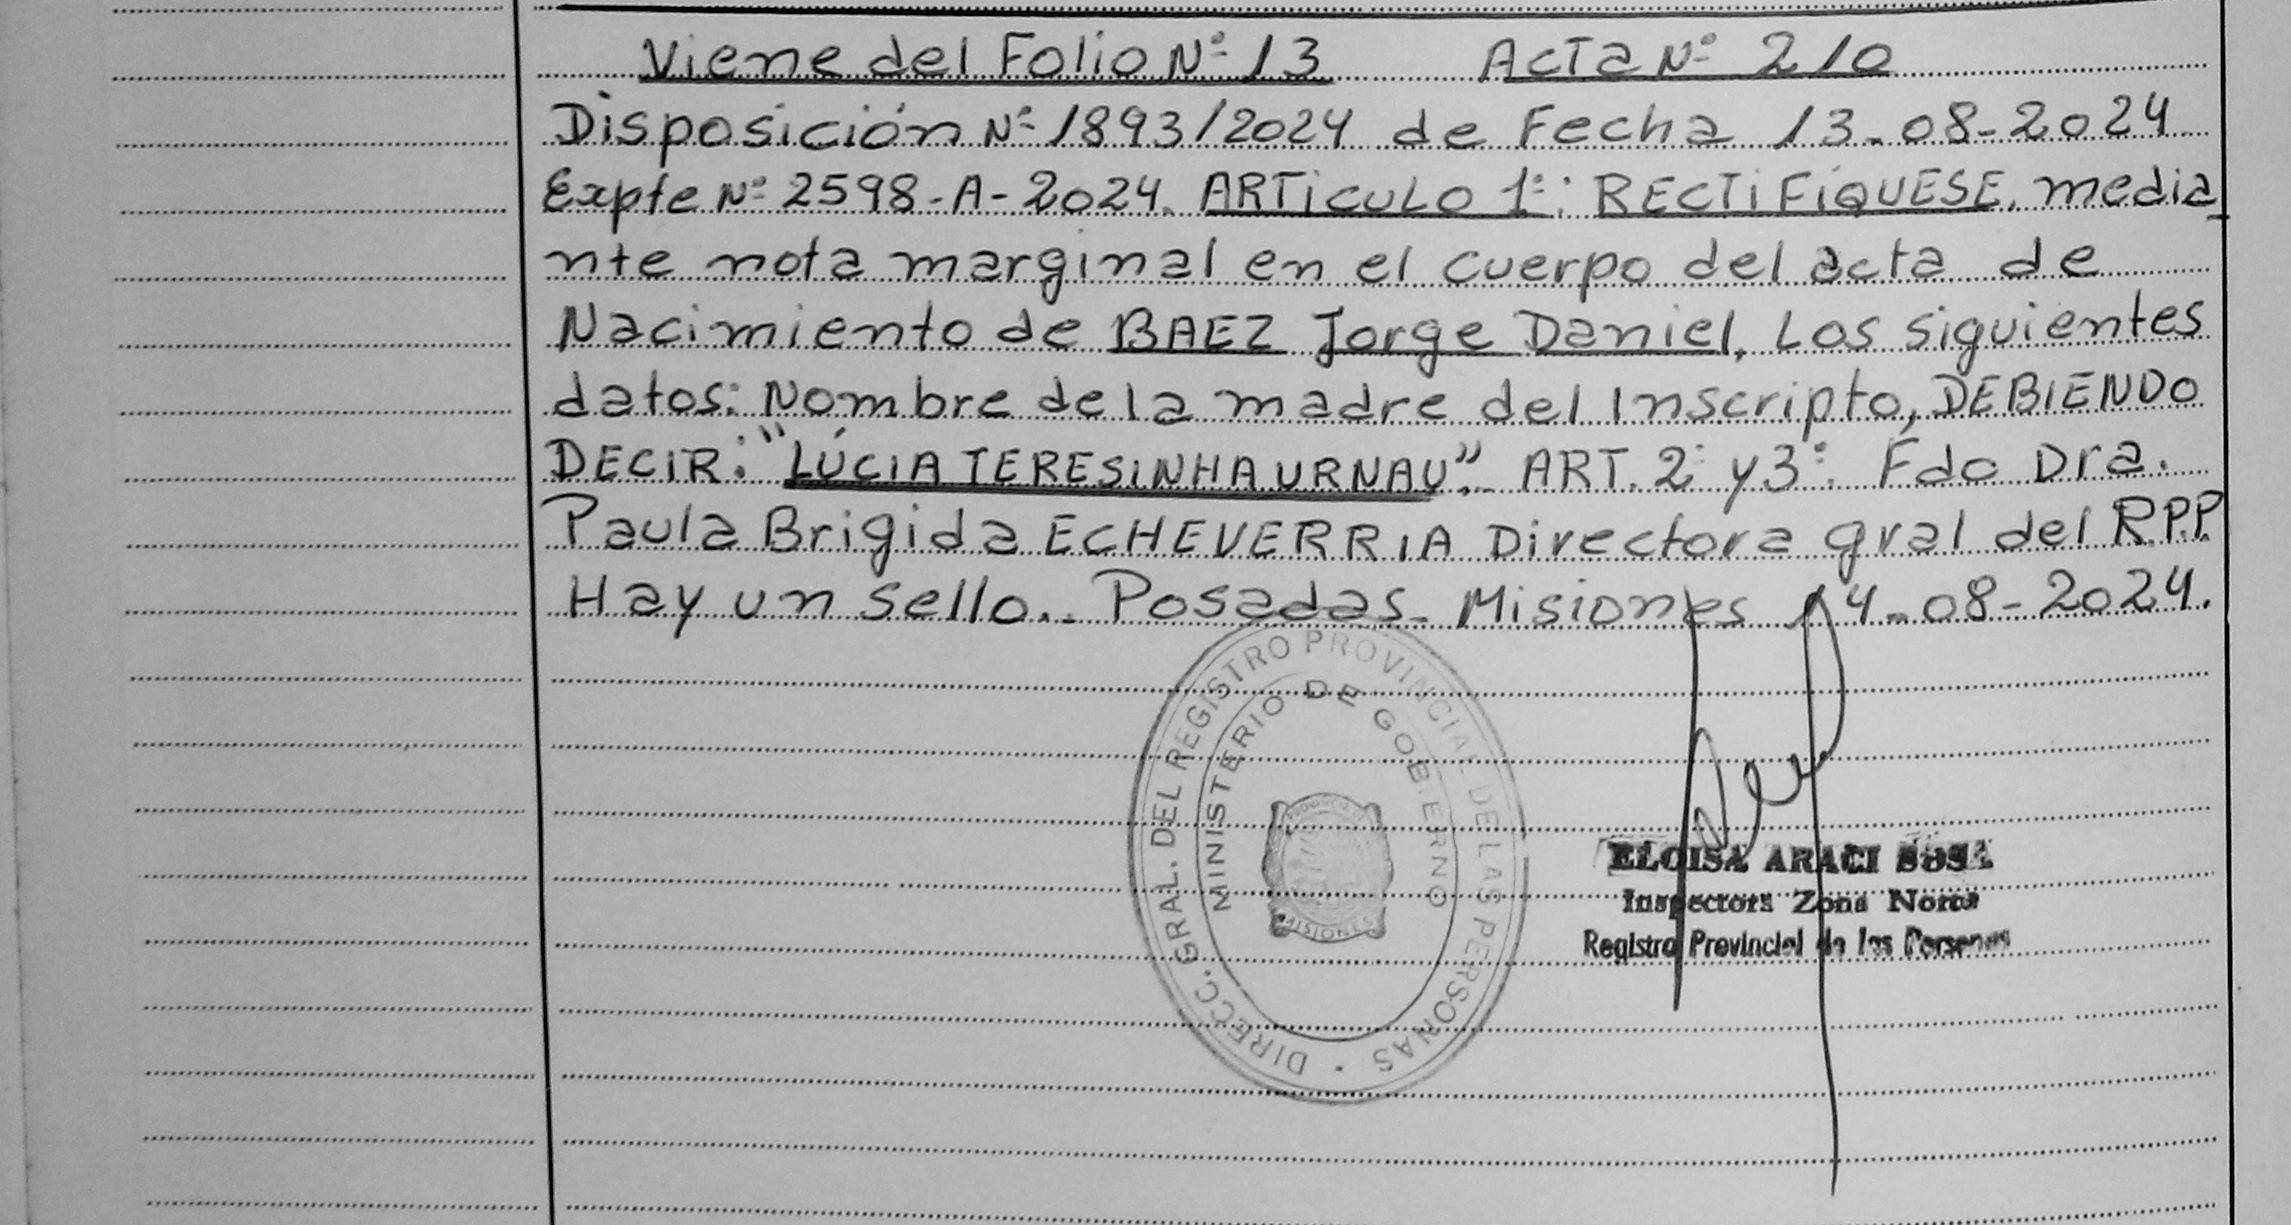 Viene del Folio Nº 13 Acta Nº 210
Disposición Nº 1893/2024 de Fecha 13-08-2024
Expte Nº 2598-A-2024. ARTiCULO 1º: RECTiFíQUESE, media
nte nota marginal en el cuerpo del acta de
Nacimiento de BAEZ Jorge Daniel, Los siguientes
datos: Nombre de la madre del Inscripto, DEBIENDO
DECiR: "LÚCIA TERESiNHA URNAU". ART. 2º y 3º: Fdo Dra.
Paula Brigida ECHEVERRIA Directora gral del R.P.P.
Hay un sello.. Posadas- Misiones 14-08-2024.
DIRECC. GRAL. DEL REGISTRO PROVINCIAL DE LAS PERSONAS
MINISTERIO DE GOBIERNO
PROVINCIA DE
MISIONES
ELOISA ARACI SOSA
Inspectora Zona Norte
Registro Provincial de las Personas